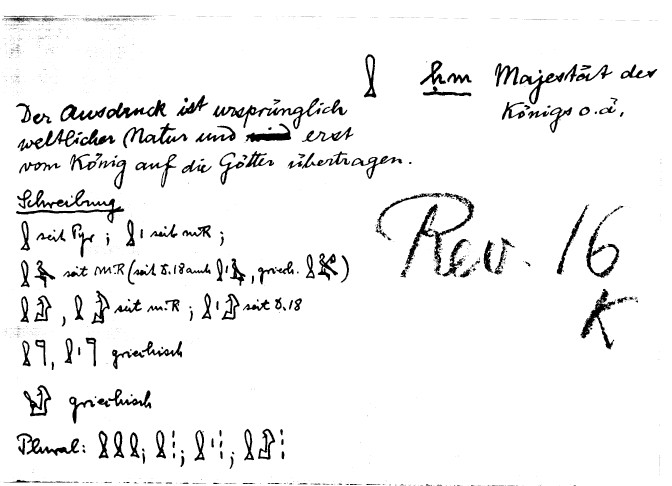 𓍛 ḥm Majestät des
Königs o.ä.
Der Ausdruck ist ursprünglich
weltlicher Natur und erst
vom König auf die Götter übertragen.
Schreibung
𓍛 seit Pyr ; 𓍛𓏤 seit m.R ;
seit M.R (seit D. 18 auch , griech. )
, seit m.R ; seit D. 18
𓍛𓊹 , 𓍛𓏤𓊹 griechisch
griechisch
Plural: 𓍛𓍛𓍛 ; 𓍛𓏥 ; 𓍛𓏤𓏥 ;
Rev. 16
K